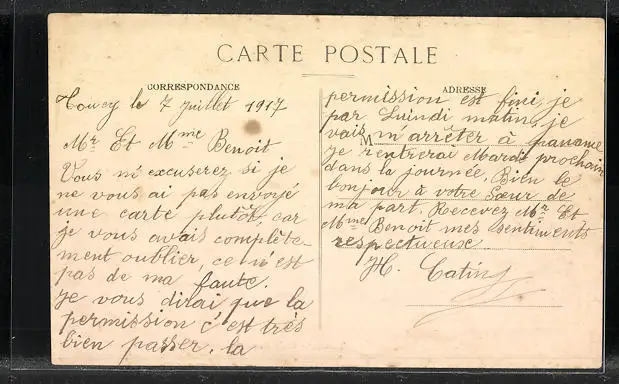 CARTE POSTALE
CORRESPONDANCE
Toucy le 7 juillet 1917
Mr Et Mme Benoit
Vous m'excuserez si je
ne vous ai pas envoyé
une carte plutôt, car
je vous avais complète-
ment oublier, ce n'est
pas de ma faute.
Je vous dirai que la
permission c'est très
bien passer. la
ADRESSE
permission est fini, je
par Luindi matin, je
vais m'arrêter à paname
M
je rentrerai Mardi prochain
dans la journée. Bien le
bonjour à votre Sœur de
ma part. Recevez Mr Et
Mme Benoit mes sentiments
respectueux
H. Catin